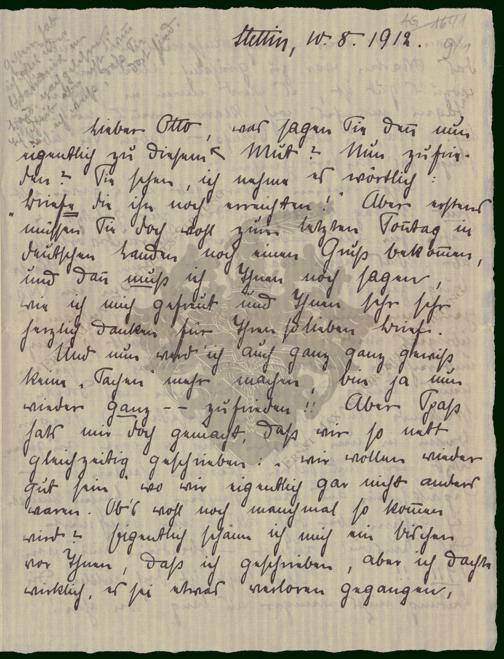 Stettin, 10.8.1912.
Lieber Otto, was sagen Sie denn nun
eigentlich zu diesem Mut? Nun zufrie-
den? Sie sehen, ich nehme es wörtlich:
"Briefe die ihn noch erreichten!" Aber erstens
müssen Sie doch wohl zum letzten Sonntag in
deutschen Landen noch einen Gruß bekommen,
und dann muß ich Ihnen noch sagen,
wie ich mich gefreut und Ihnen sehr sehr
herzlich danken für Ihren so lieben Brief.
Und nun werd ich auch ganz ganz gewiß
keine "Sachen" mehr machen, bin ja nun
wieder ganz -- zufrieden!! Aber Spaß
hats mir doch gemacht, daß wir so nett
gleichzeitig geschrieben: "wir wollen wieder
gut sein" wo wir eigentlich gar nicht anders
waren. Ob's wohl noch manchmal so kommen
wird? Eigentlich schäm ich mich ein bischen
vor Ihnen, daß ich geschrieben, aber ich dachte
wirklich, es sei etwas verloren gegangen,